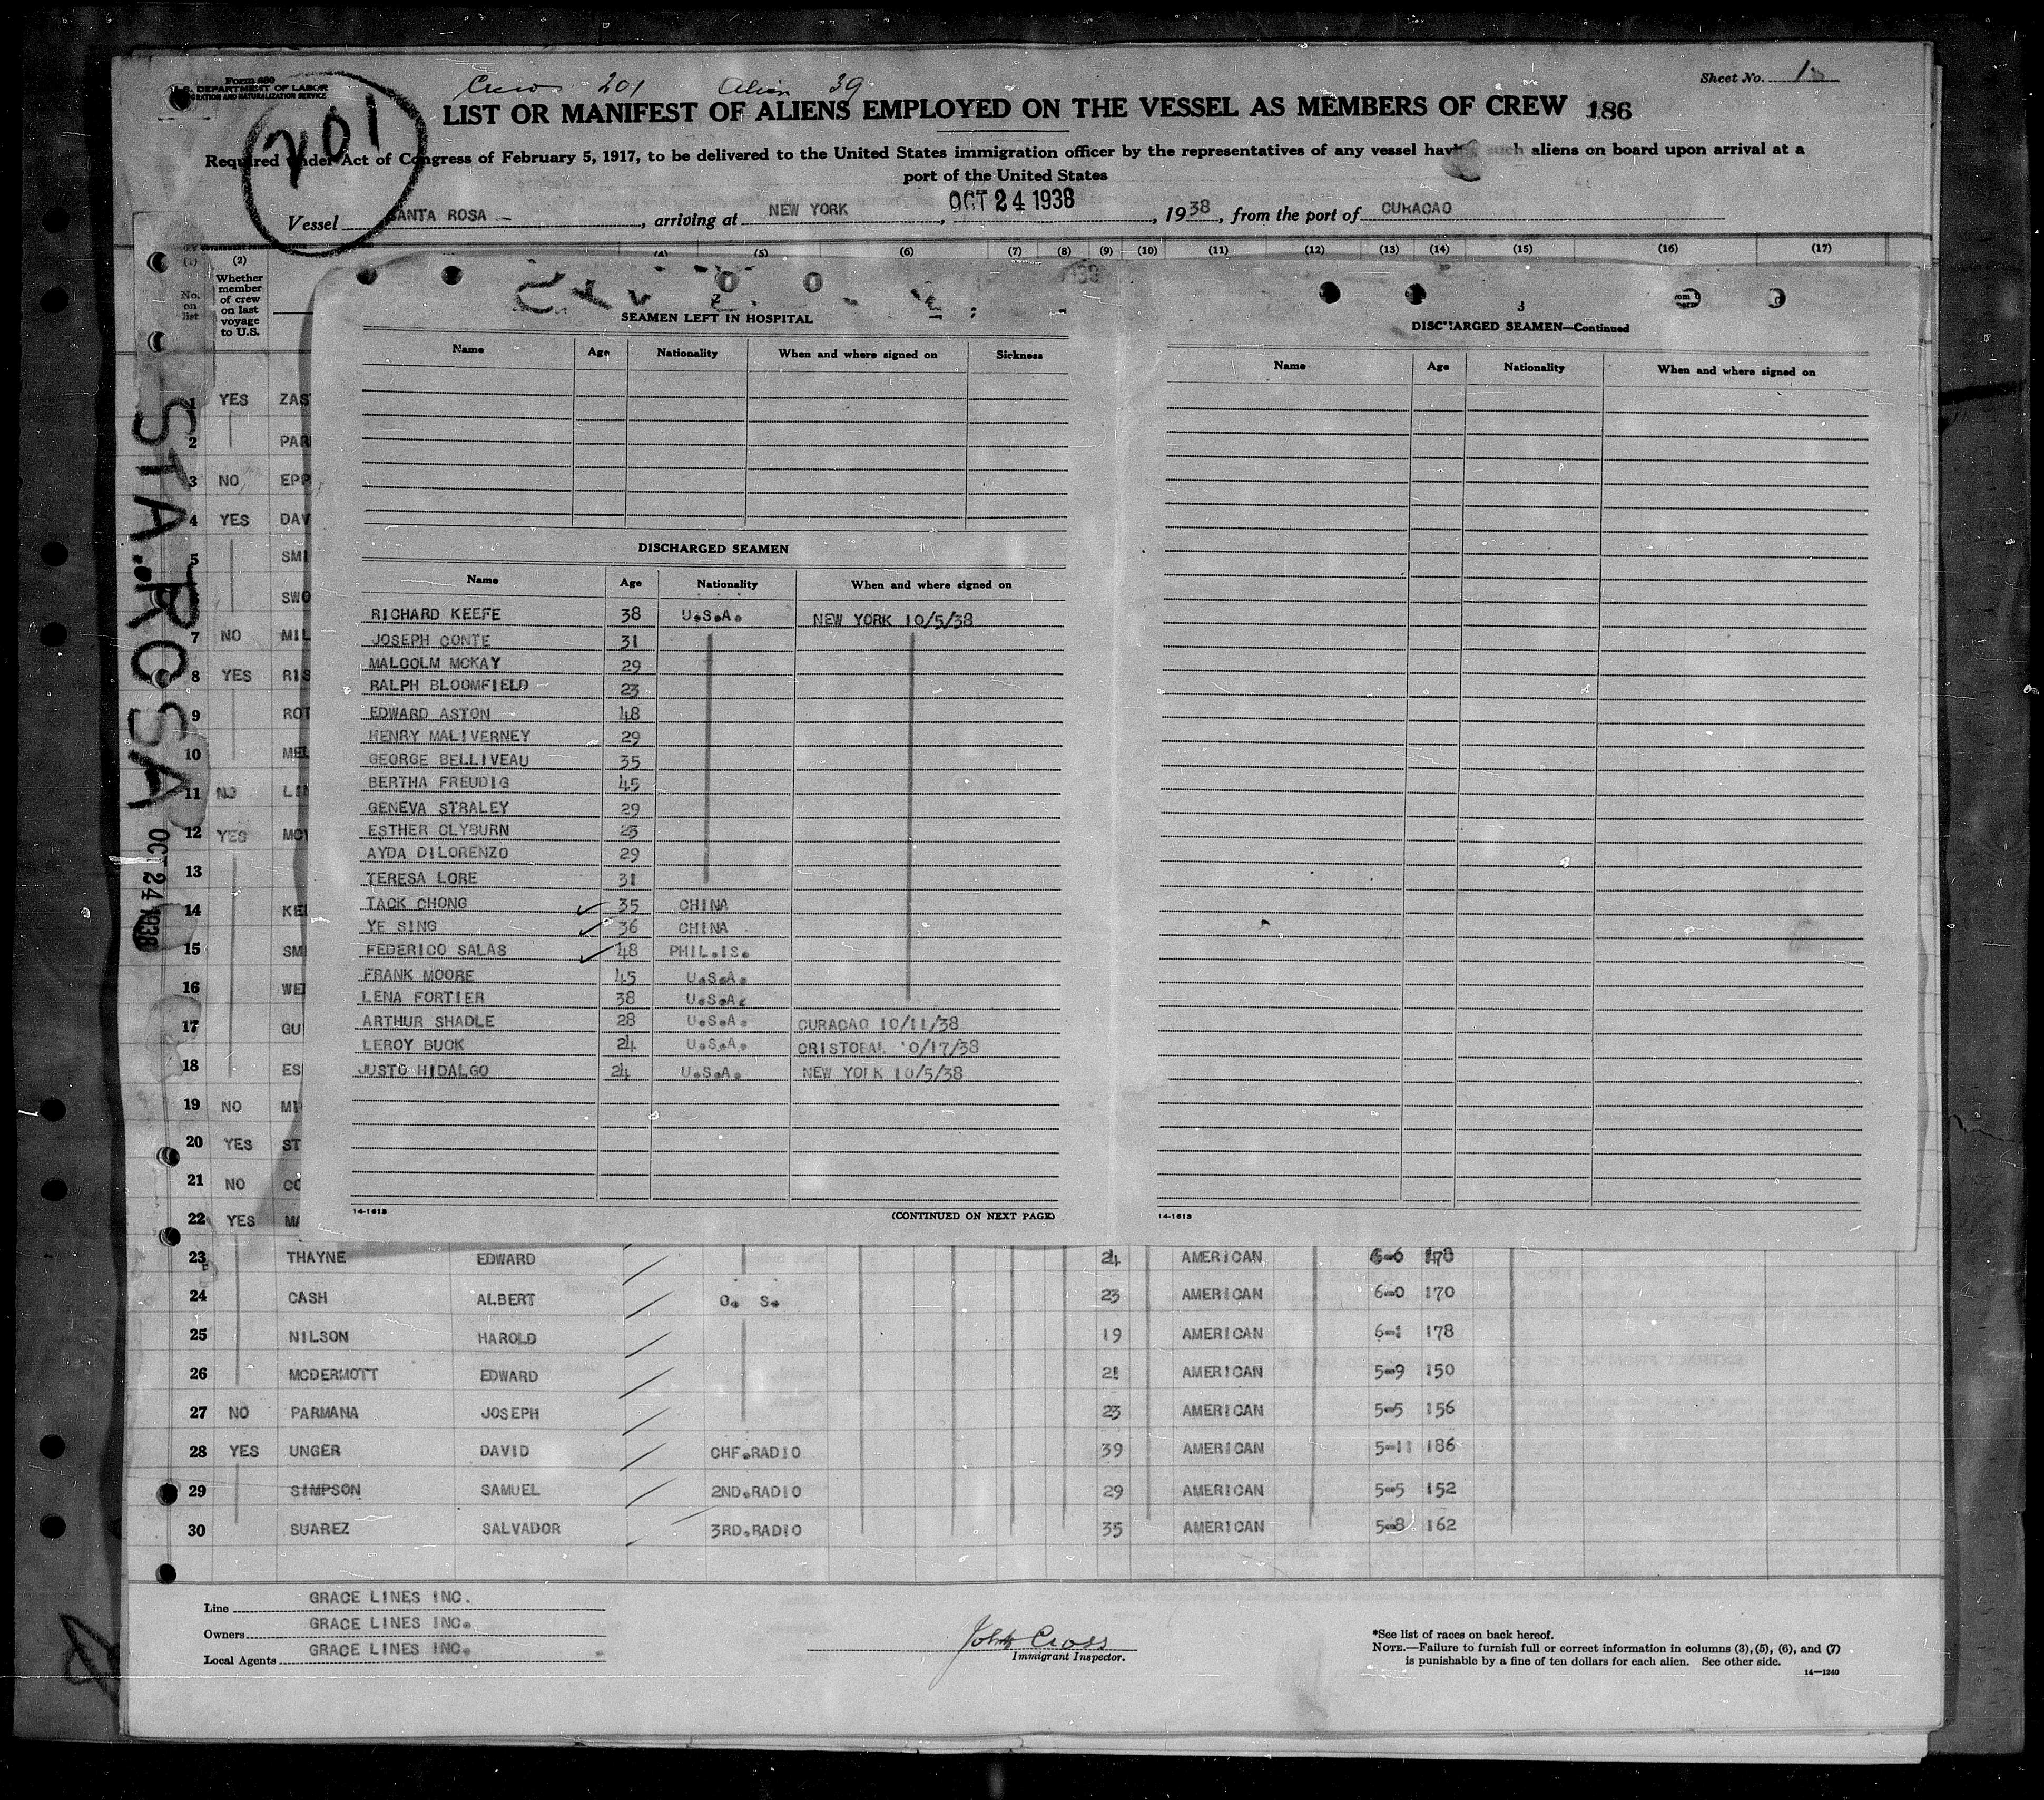 Form 680
U.S. DEPARTMENT OF LABOR
IMMIGRATION AND NATURALIZATION SERVICE
201
Crew 201 Alien 39
Sheet No. 1
LIST OR MANIFEST OF ALIENS EMPLOYED ON THE VESSEL AS MEMBERS OF CREW 186
Required under Act of Congress of February 5, 1917, to be delivered to the United States immigration officer by the representatives of any vessel having such aliens on board upon arrival at a
port of the United States
Vessel SANTA ROSA, arriving at NEW YORK, OCT 24 1938, 1938, from the port of CURACAO
(1) (2) (4) (5) (6) (7) (8) (9) (10) (11) (12) (13) (14) (15) (16) (17)
No. on list
Whether member of crew on last voyage to U.S.
STA. ROSA OCT 24 1938
1 YES ZAS
2 PAR
3 NO EPP
4 YES DAV
5 SMI
SWO
7 NO MIL
8 YES RIS
9 ROT
10 MEL
11 NO LIN
12 YES MOY
13
14 KEL
15 SM
16 WE
17 GU
18 ES
19 NO MI
20 YES ST
21 NO CO
22 YES MA
2
SEAMEN LEFT IN HOSPITAL
Name Age Nationality When and where signed on Sickness
DISCHARGED SEAMEN
Name Age Nationality When and where signed on
RICHARD KEEFE 38 U.S.A. NEW YORK 10/5/38
JOSEPH CONTE 31
MALCOLM MCKAY 29
RALPH BLOOMFIELD 23
EDWARD ASTON 48
HENRY MALIVERNEY 29
GEORGE BELLIVEAU 35
BERTHA FREUDIG 45
GENEVA STRALEY 29
ESTHER CLYBURN 23
AYDA DILORENZO 29
TERESA LORE 31
TACK CHONG 35 CHINA
YE SING 36 CHINA
FEDERICO SALAS 48 PHIL.IS.
FRANK MOORE 45 U.S.A.
LENA FORTIER 38 U.S.A.
ARTHUR SHADLE 28 U.S.A. CURACAO 10/11/38
LEROY BUCK 24 U.S.A. CRISTOBAL 10/17/38
JUSTO HIDALGO 24 U.S.A. NEW YORK 10/5/38
14-1613 (CONTINUED ON NEXT PAGE)
3
DISCHARGED SEAMEN—Continued
Name Age Nationality When and where signed on
14-1613
23 THAYNE EDWARD 24 AMERICAN 6-6 178
24 CASH ALBERT O. S. 23 AMERICAN 6-0 170
25 NILSON HAROLD 19 AMERICAN 6-1 178
26 MCDERMOTT EDWARD 21 AMERICAN 5-9 150
27 NO PARMANA JOSEPH 23 AMERICAN 5-5 156
28 YES UNGER DAVID CHF.RADIO 39 AMERICAN 5-11 186
29 SIMPSON SAMUEL 2ND.RADIO 29 AMERICAN 5-5 152
30 SUAREZ SALVADOR 3RD.RADIO 35 AMERICAN 5-8 162
Line GRACE LINES INC.
Owners GRACE LINES INC.
Local Agents GRACE LINES INC.
John Cross
Immigrant Inspector.
*See list of races on back hereof.
NOTE.—Failure to furnish full or correct information in columns (3), (5), (6), and (7)
is punishable by a fine of ten dollars for each alien. See other side.
14—1240